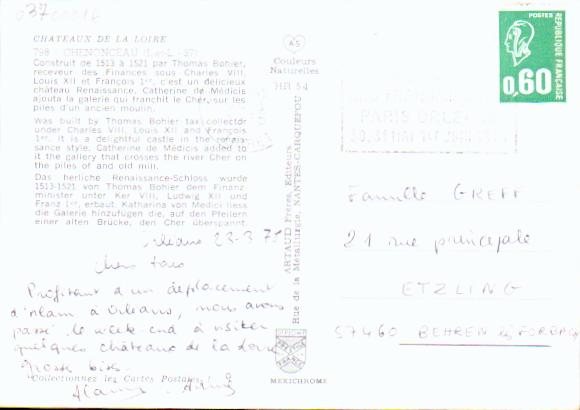 CHATEAUX DE LA LOIRE
798 - CHENONCEAU (I.-et-L. -37)
Construit de 1513 à 1521 par Thomas Bohier,
receveur des Finances sous Charles VIII,
Louis XII et François 1er, c'est un délicieux
château Renaissance. Catherine de Médicis
ajouta la galerie qui franchit le Cher, sur les
piles d'un ancien moulin.
Was built by Thomas Bohier tax collector
under Charles VIII, Louis XII and François
1er. It is a delightful castle in the renais-
sance style. Catherine de Médicis added to
it the gallery that crosses the river Cher on
the piles of and old mill.
Das herliche Renaissance-Schloss wurde
1513-1521 von Thomas Bohier dem Finanz-
minister unter Ker VIII, Ludwig XII und
Franz 1er, erbaut. Katharina von Medici liess
die Galerie hinzufügen die, auf den Pfeilern
einer alten Brücke, den Cher überspannt.
Orléans 23-3-75
Chers tous
Profitant d'un déplacement
d'Alain à Orléans, nous avons
passé le week-end à visiter
quelques châteaux de la Loire
grosses bises.
Collectionnez les Cartes Postales !
AS
Couleurs
Naturelles
HR 54
ARTAUD Frères, Editeurs
Rue de la Métallurgie, NANTES-CARQUEFOU
MEXICHROME
POSTES
0,60
REPUBLIQUE FRANÇAISE
Famille GREFF
21 rue principale
ETZLING
57460 BEHREN lès FORBACH